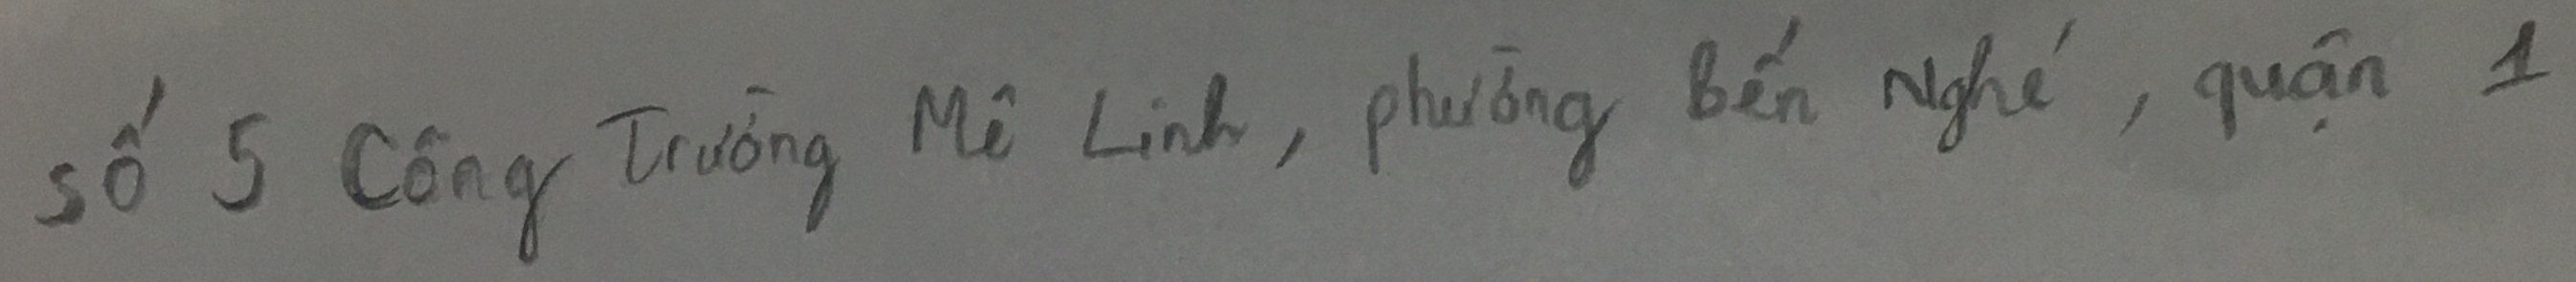 số 5 Công Trường Mê Linh, phường Bến Nghé, quận 1